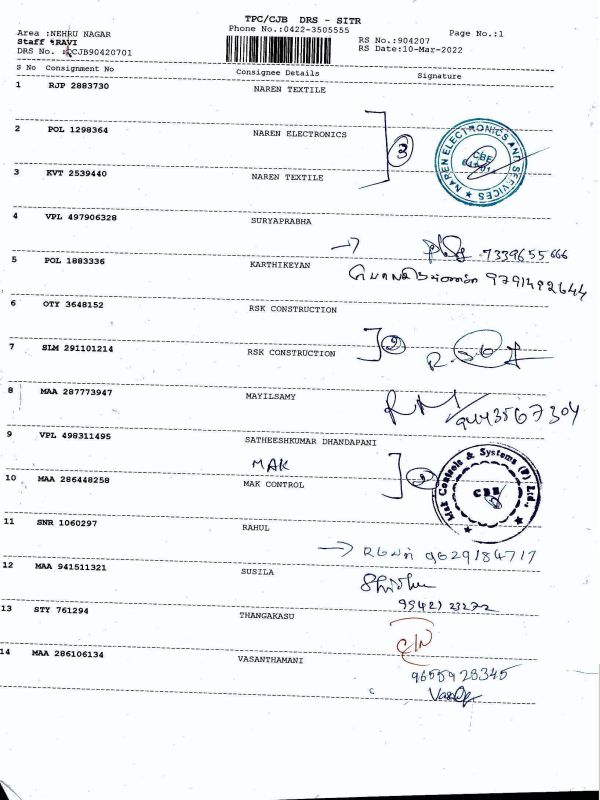 TPC/CJB DRS - SITR
Phone No.:0422-3505555
Page No.:1
Area :NEHRU NAGAR
RS No.:904207
Staff :RAVI
RS Date:10-Mar-2022
DRS No. :CJB90420701
S No Consignment No Consignee Details Signature
1 RJP 2883730 NAREN TEXTILE
2 POL 1298364 NAREN ELECTRONICS
3
NAREN ELECTRONICS AND SERVICES
CBE
3 KVT 2539440 NAREN TEXTILE
4 VPL 497906328 SURYAPRABHA
7339655666
5 POL 1883336 KARTHIKEYAN
9791482644
6 OTY 3648152 RSK CONSTRUCTION
7 SLM 291101214 RSK CONSTRUCTION
2
8 MAA 287773947 MAYILSAMY
9443567304
9 VPL 498311495 SATHEESHKUMAR DHANDAPANI
MAK
2
Mak Controls & Systems (P) Ltd.,
CBE
10 MAA 286448258 MAK CONTROL
11 SNR 1060297 RAHUL
9629184717
12 MAA 941511321 SUSILA
9942123272
13 STY 761294 THANGAKASU
14 MAA 286106134 VASANTHAMANI
9655928345